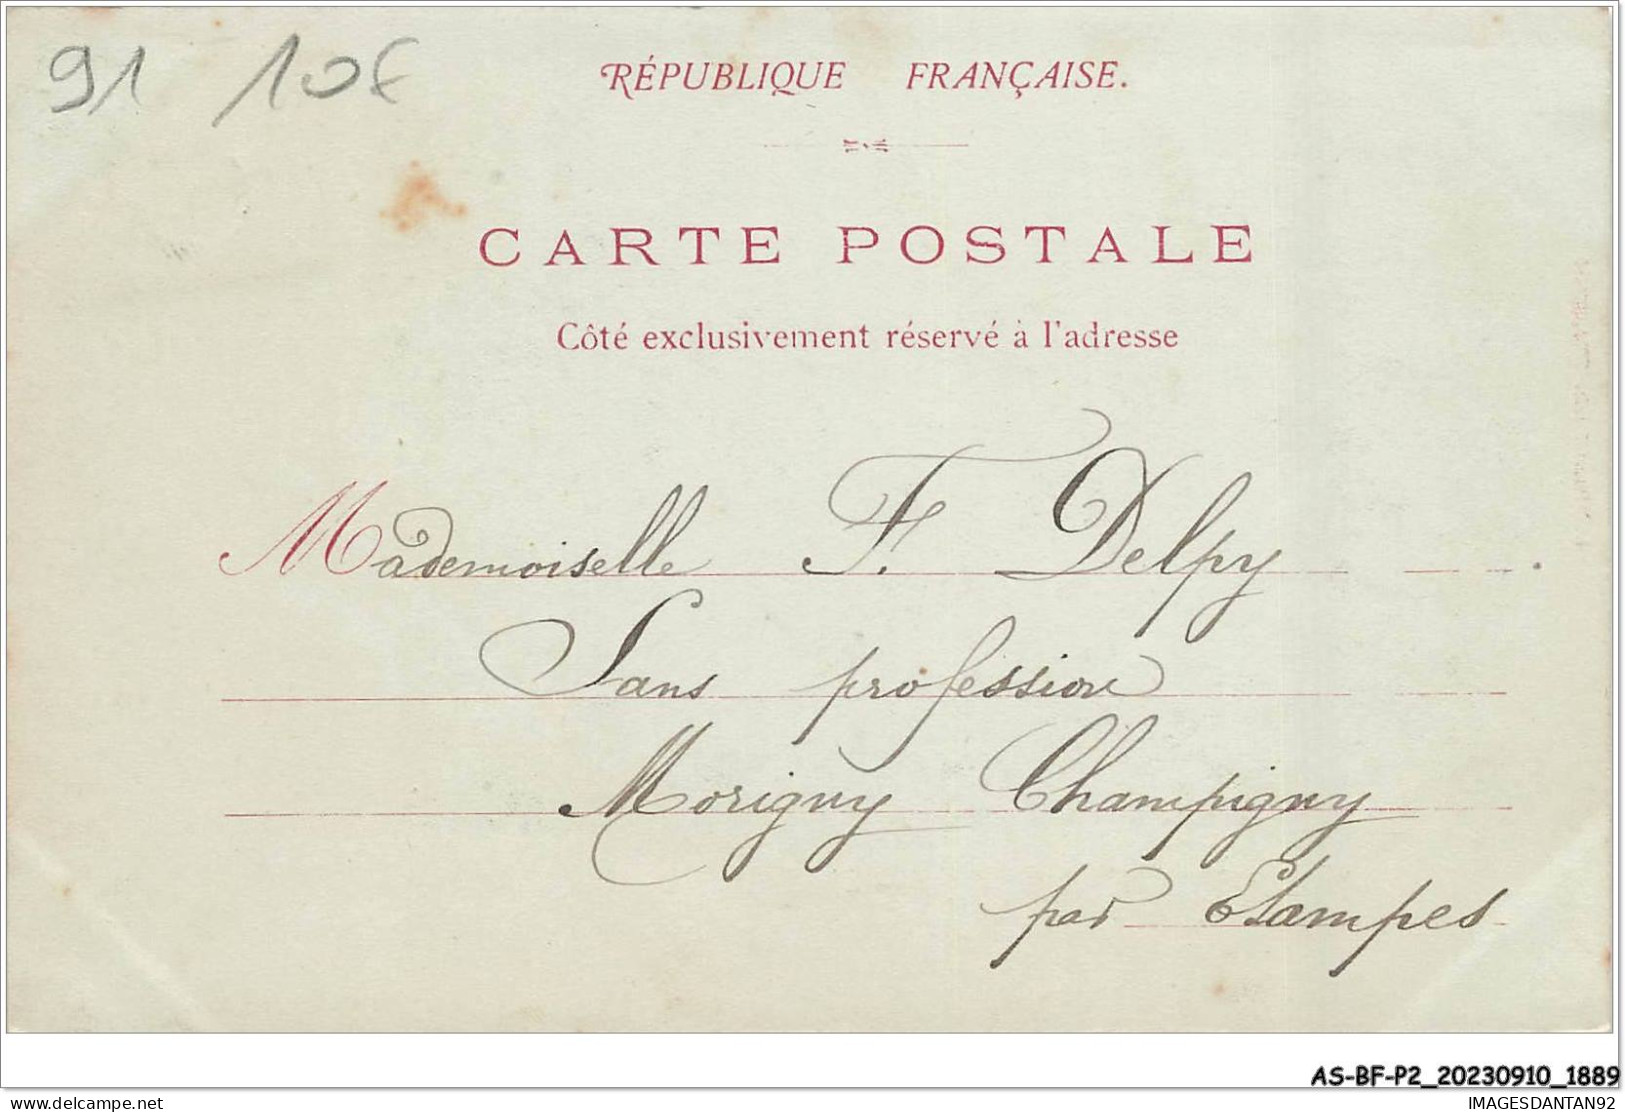 91 10€
RÉPUBLIQUE FRANÇAISE.
CARTE POSTALE
Côté exclusivement réservé à l'adresse
Mademoiselle F. Delpy
Sans profession
Morigny Champigny
par Etampes
AS-BF-P2_20230910_1889
www.delcampe.net
IMAGESDANTAN92